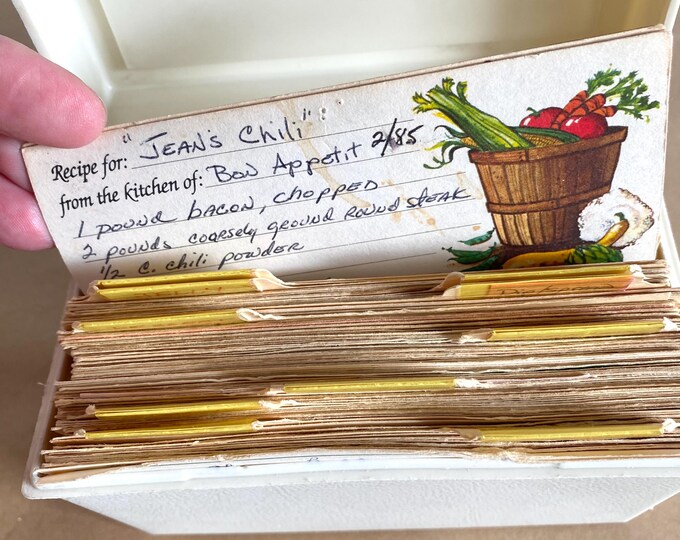 Recipe for: "Jean's Chili"
from the kitchen of: Bon Appetit 2/85
1 pound bacon, chopped
2 pounds coarsely ground round steak
1/2 c. chili powder